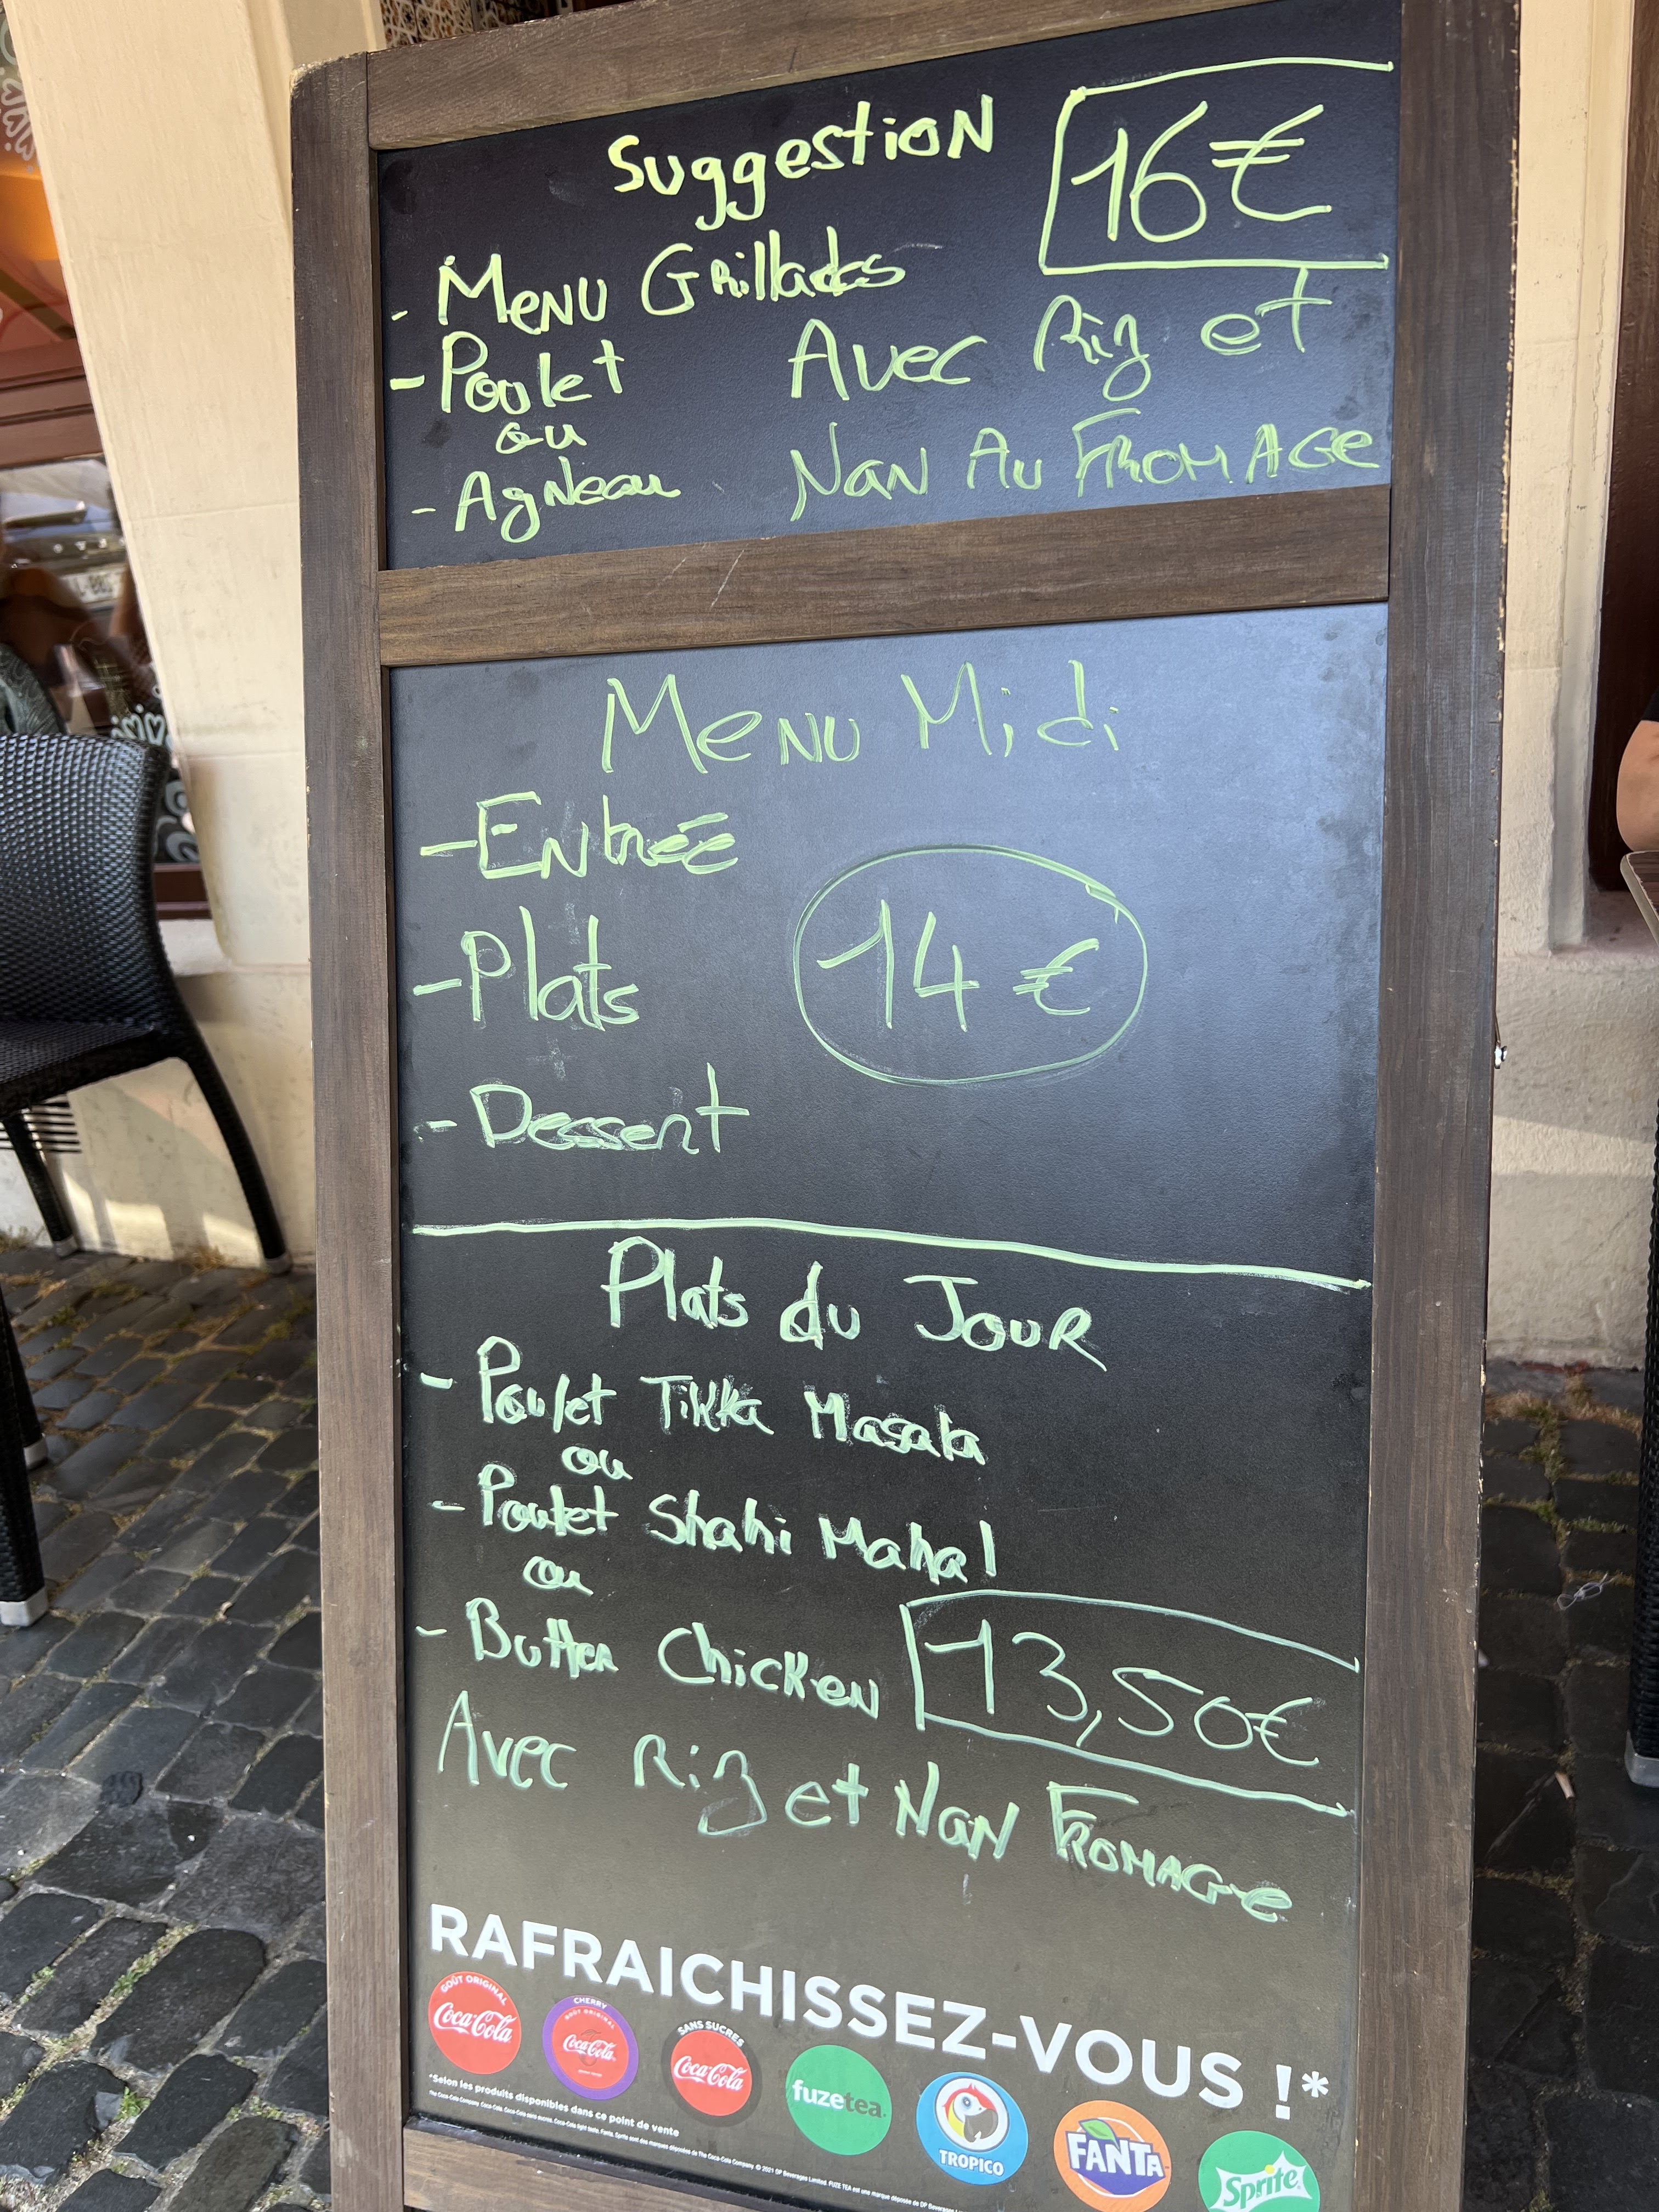 Suggestion
16€
- Menu Grillades
- Poulet
ou
- Agneau
Avec Riz et
Nan Au Fromage
Menu Midi
- Entrée
- Plats
- Dessert
14€
Plats du Jour
- Poulet Tikka Masala
ou
- Poulet Shahi Mahal
ou
- Butter Chicken
13,50€
Avec Riz et Nan Fromage
RAFRAICHISSEZ-VOUS !*
GOÛT ORIGINAL
Coca-Cola
CHERRY
GOÛT ORIGINAL
Coca-Cola
SANS SUCRES
Coca-Cola
fuzetea
TROPICO
FANTA
Sprite
*Selon les produits disponibles dans ce point de vente